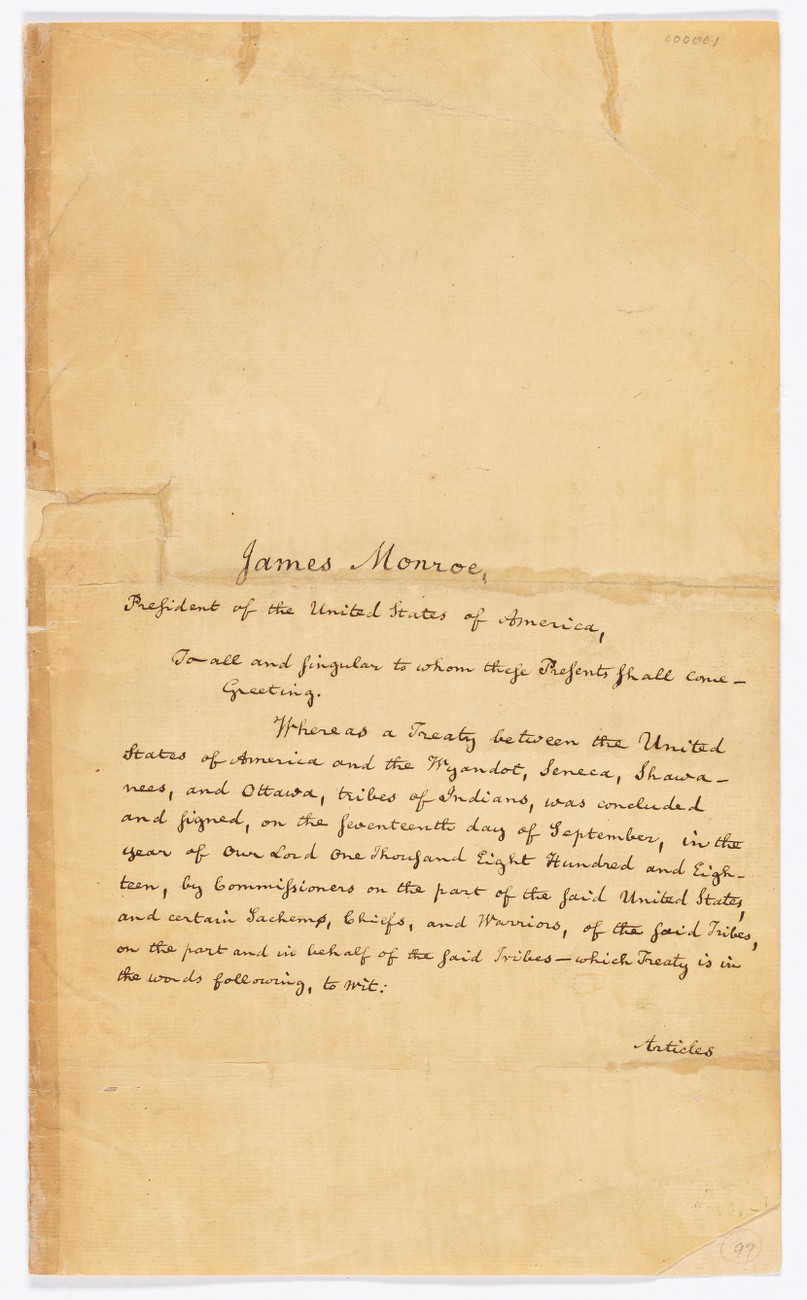 000001
James Monroe,
President of the United States of America,
To all and singular to whom these Presents shall come—
Greeting.
Whereas a Treaty between the United
States of America and the Wyandot, Seneca, Shawa-
nees, and Ottawa, tribes of Indians, was concluded
and signed, on the seventeenth day of September, in the
year of Our Lord One Thousand Eight Hundred and Eigh-
teen, by Commissioners on the part of the said United States,
and certain Sachems, Chiefs, and Warriors, of the said Tribes,
on the part and in behalf of the said Tribes—which Treaty is in
the words following, to wit:
Articles
97